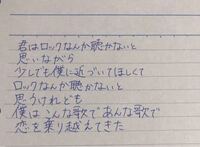 君はロックなんか聴かないと
思いながら
少しでも僕に近づいてほしくて
ロックなんか聴かないと
思うけれども
僕はこんな歌であんな歌で
恋を乗り越えてきた